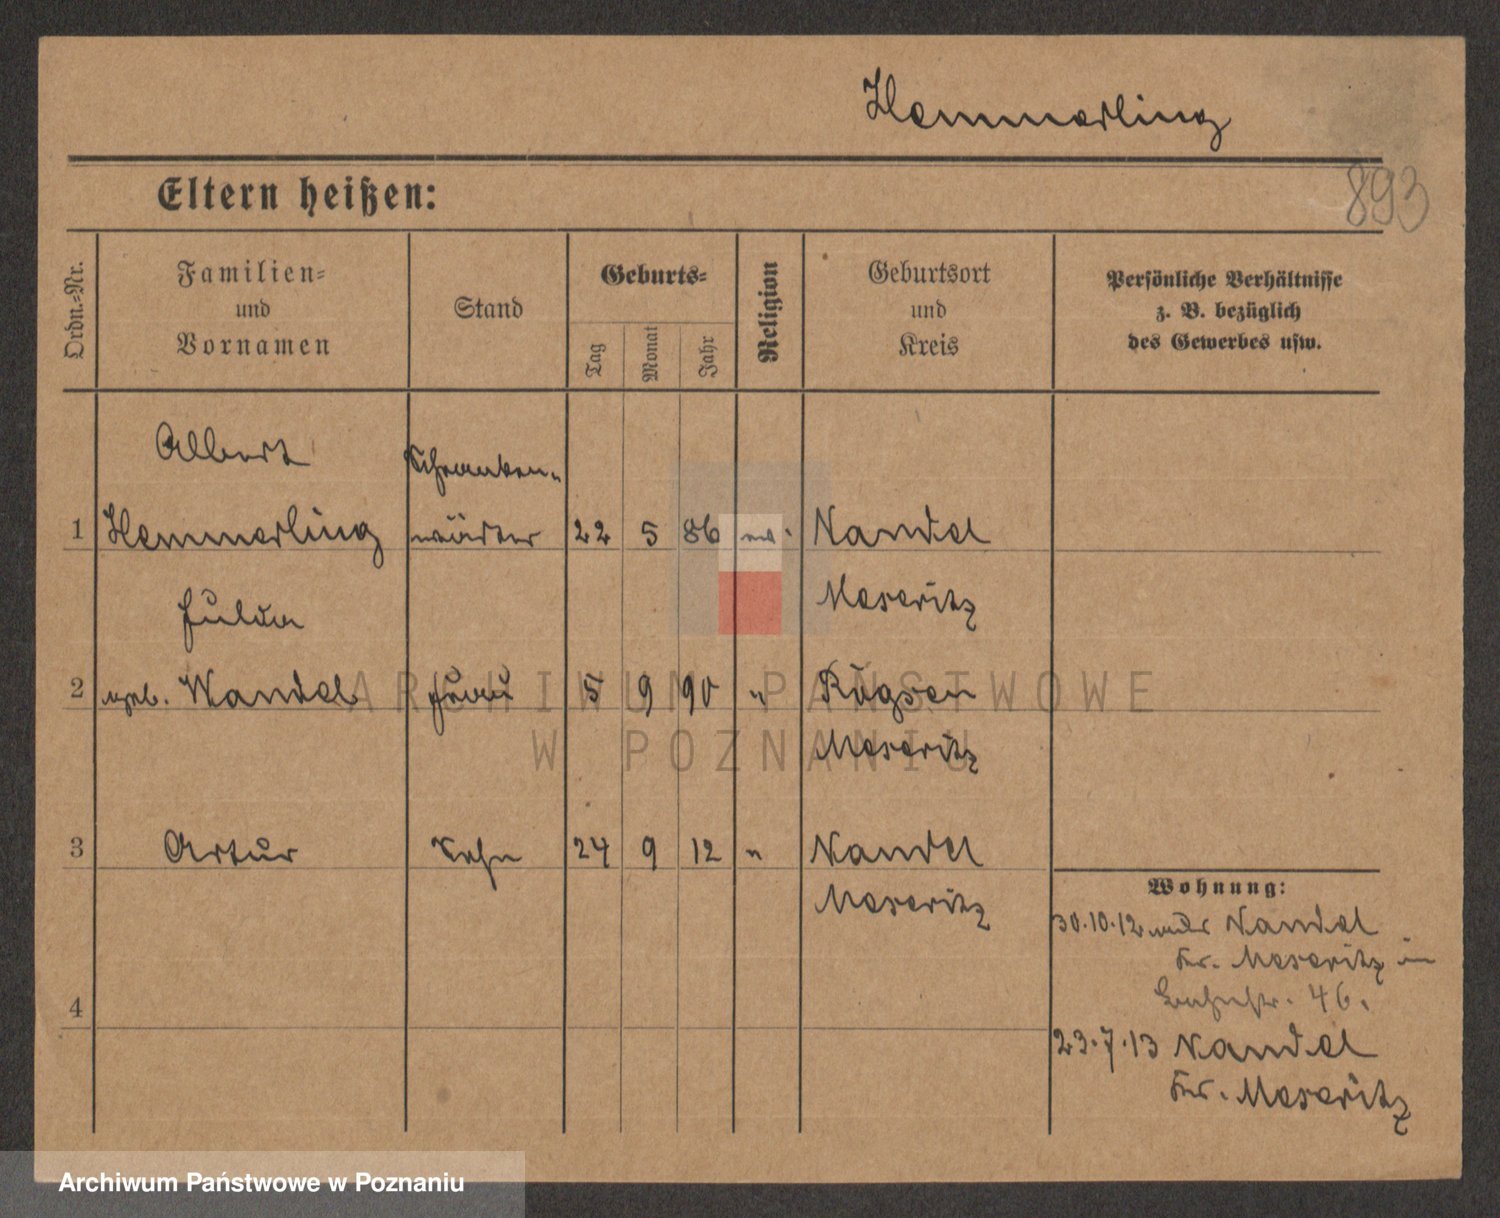 Hemmerling
893
Eltern heißen:
Ordn.-Nr.
Familien-
und
Vornamen
Stand
Geburts-
Tag
Monat
Jahr
Religion
Geburtsort
und
Kreis
Persönliche Verhältnisse
z. B. bezüglich
des Gewerbes usw.
Albert Schranken-
1 Hemmerling wärter 22 5 86 Nandel
Meseritz
Hulda
2 geb. Wandel Frau 5 9 90 " Rogsen
Meseritz
3 Artur Sohn 24 9 12 " Nandel
Meseritz
Wohnung:
30.10.12 Nandel
Kr. Meseritz in
Bahnstr. 46.
4
23.7.13 Nandel
Kr. Meseritz
ARCHIWUM PAŃSTWOWE
W POZNANIU
Archiwum Państwowe w Poznaniu